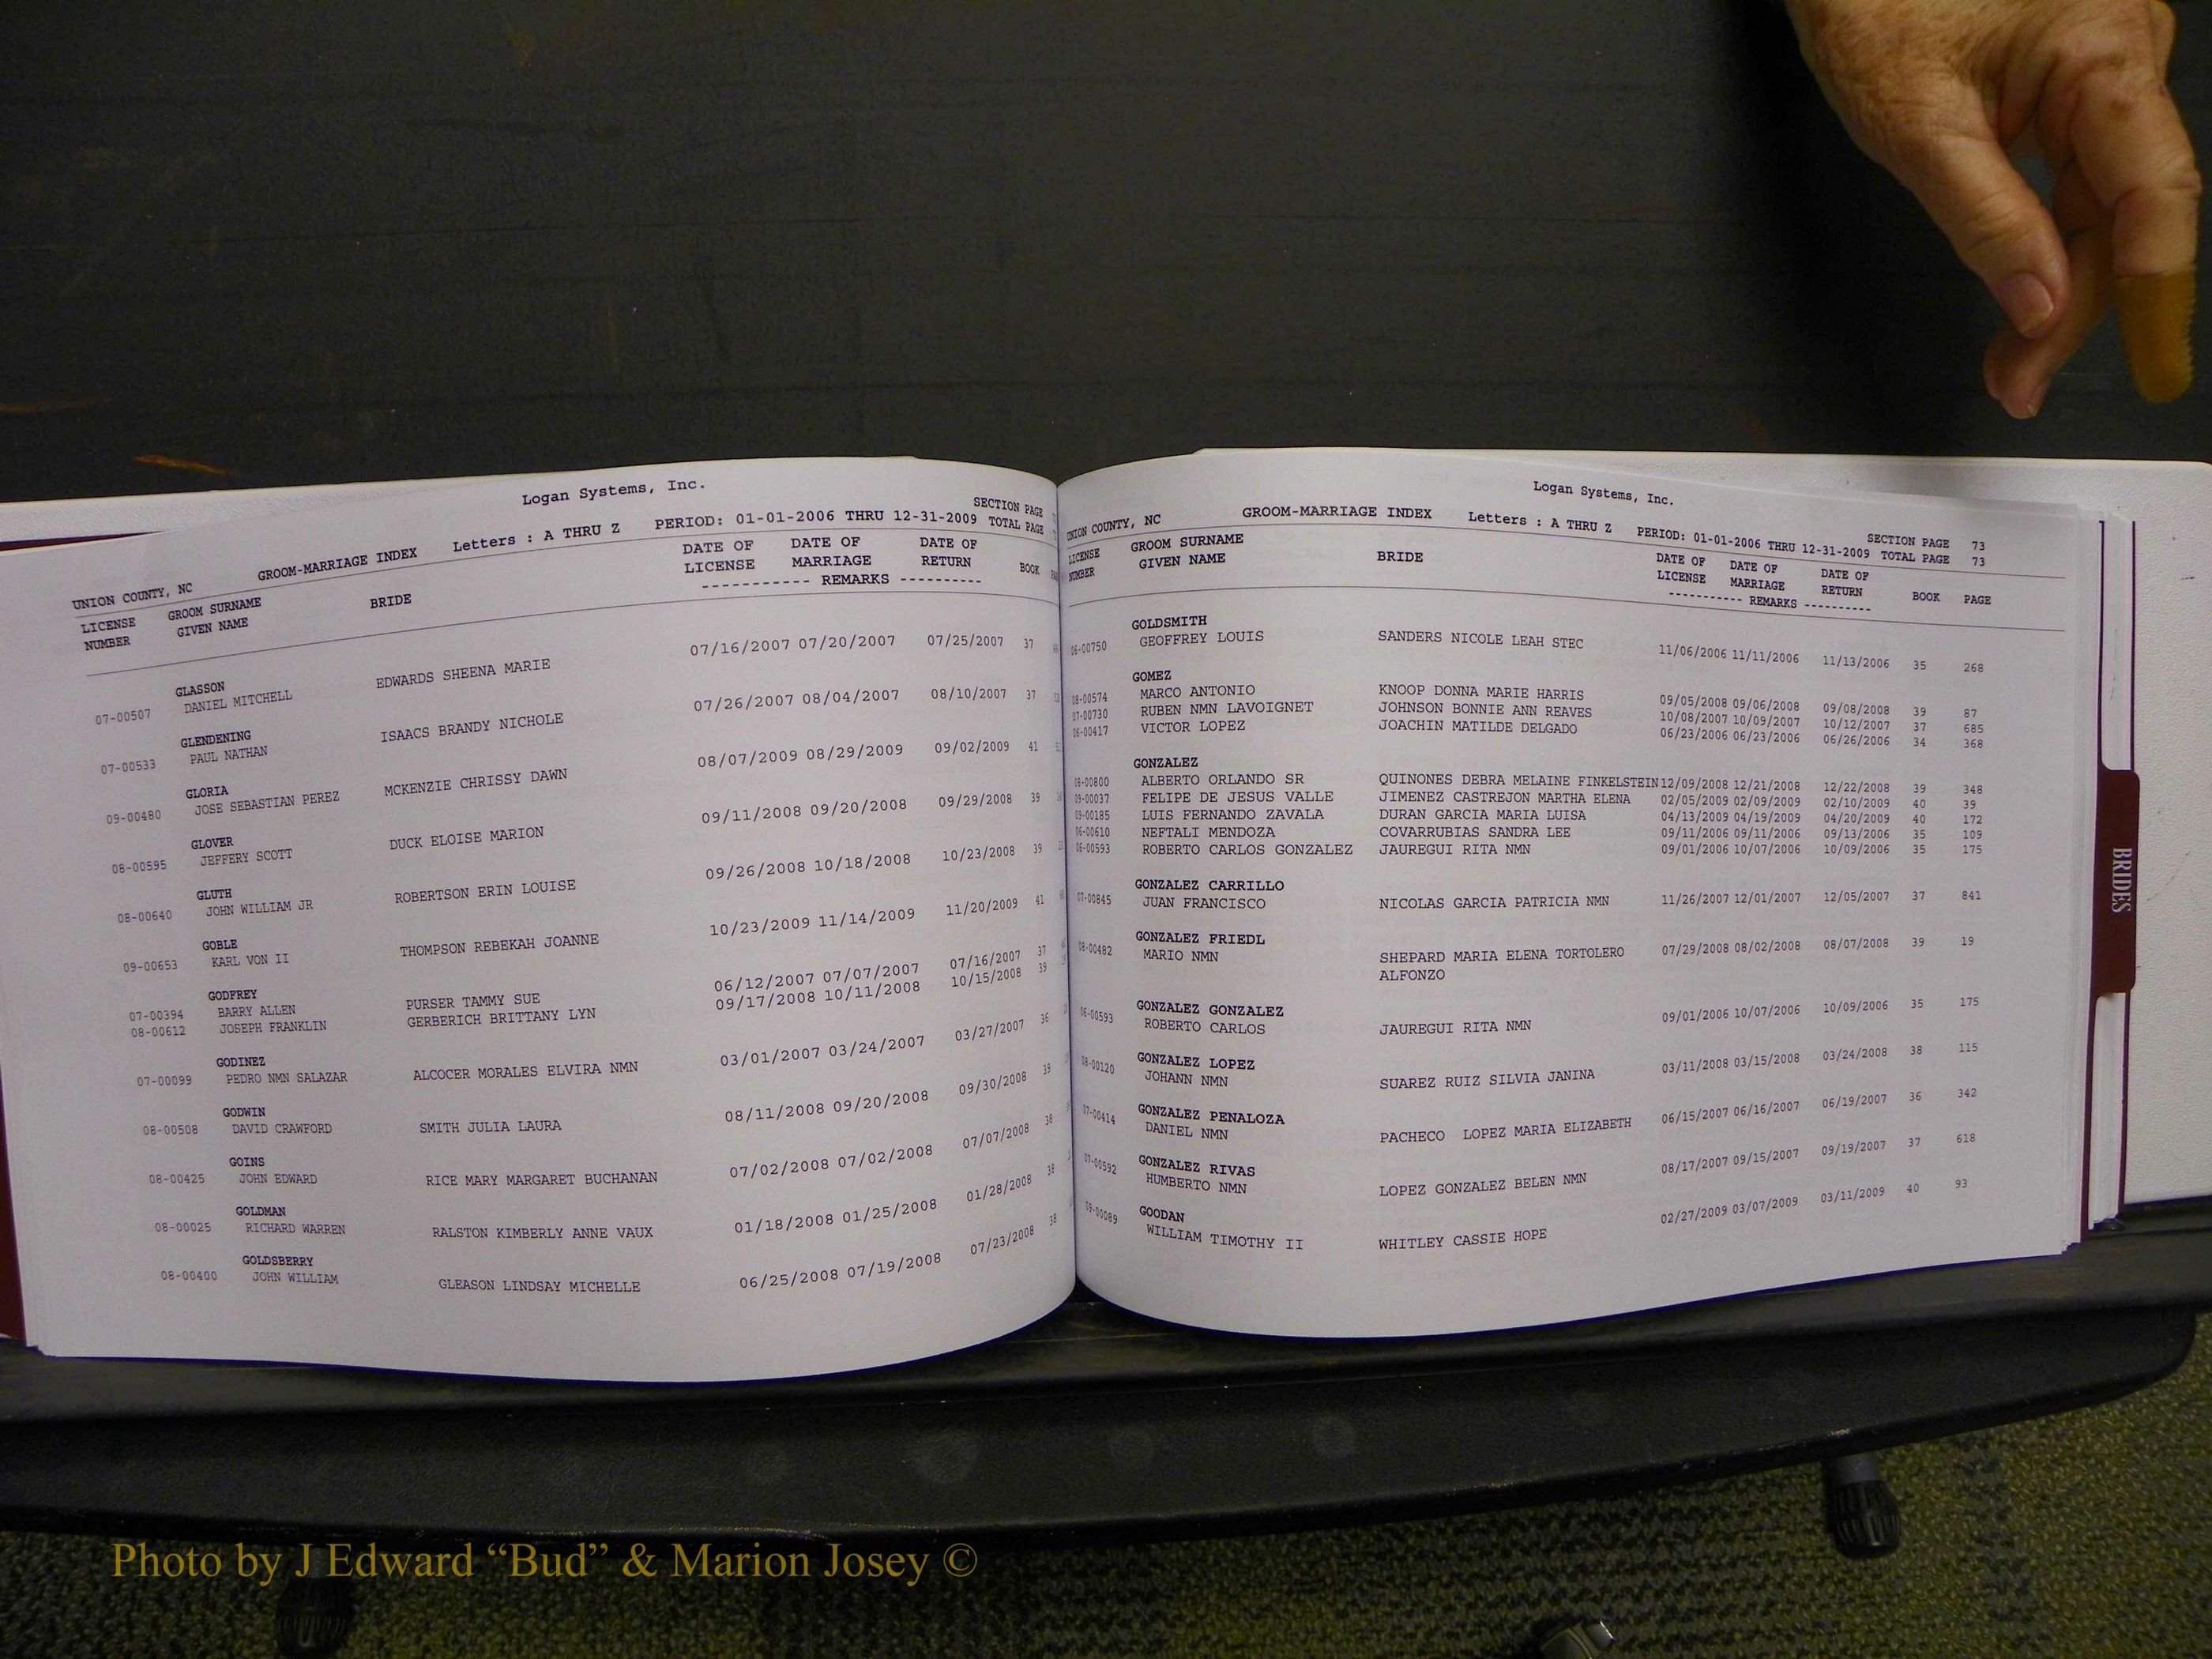 Logan Systems, Inc.
SECTION PAGE
UNION COUNTY, NC GROOM-MARRIAGE INDEX Letters : A THRU Z PERIOD: 01-01-2006 THRU 12-31-2009 TOTAL PAGE
LICENSE GROOM SURNAME BRIDE DATE OF DATE OF DATE OF
NUMBER GIVEN NAME LICENSE MARRIAGE RETURN BOOK
----------- REMARKS ----------
GLASSON
07-00507 DANIEL MITCHELL EDWARDS SHEENA MARIE 07/16/2007 07/20/2007 07/25/2007 37
GLENDENING
07-00533 PAUL NATHAN ISAACS BRANDY NICHOLE 07/26/2007 08/04/2007 08/10/2007 37
GLORIA
09-00480 JOSE SEBASTIAN PEREZ MCKENZIE CHRISSY DAWN 08/07/2009 08/29/2009 09/02/2009 41
GLOVER
08-00595 JEFFERY SCOTT DUCK ELOISE MARION 09/11/2008 09/20/2008 09/29/2008 39
GLUTH
08-00640 JOHN WILLIAM JR ROBERTSON ERIN LOUISE 09/26/2008 10/18/2008 10/23/2008 39
GOBLE
09-00653 KARL VON II THOMPSON REBEKAH JOANNE 10/23/2009 11/14/2009 11/20/2009 41
GODFREY
07-00394 BARRY ALLEN PURSER TAMMY SUE 06/12/2007 07/07/2007 07/16/2007 37
08-00612 JOSEPH FRANKLIN GERBERICH BRITTANY LYN 09/17/2008 10/11/2008 10/15/2008 39
GODINEZ
07-00099 PEDRO NMN SALAZAR ALCOCER MORALES ELVIRA NMN 03/01/2007 03/24/2007 03/27/2007 36
GODWIN
08-00508 DAVID CRAWFORD SMITH JULIA LAURA 08/11/2008 09/20/2008 09/30/2008 39
GOINS
08-00425 JOHN EDWARD RICE MARY MARGARET BUCHANAN 07/02/2008 07/02/2008 07/07/2008 38
GOLDMAN
08-00025 RICHARD WARREN RALSTON KIMBERLY ANNE VAUX 01/18/2008 01/25/2008 01/28/2008 38
GOLDSBERRY
08-00400 JOHN WILLIAM GLEASON LINDSAY MICHELLE 06/25/2008 07/19/2008 07/23/2008 38
Logan Systems, Inc.
SECTION PAGE 73
UNION COUNTY, NC GROOM-MARRIAGE INDEX Letters : A THRU Z PERIOD: 01-01-2006 THRU 12-31-2009 TOTAL PAGE 73
LICENSE GROOM SURNAME BRIDE DATE OF DATE OF DATE OF
NUMBER GIVEN NAME LICENSE MARRIAGE RETURN BOOK PAGE
----------- REMARKS ----------
GOLDSMITH
06-00750 GEOFFREY LOUIS SANDERS NICOLE LEAH STEC 11/06/2006 11/11/2006 11/13/2006 35 268
GOMEZ
08-00574 MARCO ANTONIO KNOOP DONNA MARIE HARRIS 09/05/2008 09/06/2008 09/08/2008 39 87
07-00730 RUBEN NMN LAVOIGNET JOHNSON BONNIE ANN REAVES 10/08/2007 10/09/2007 10/12/2007 37 685
06-00417 VICTOR LOPEZ JOACHIN MATILDE DELGADO 06/23/2006 06/23/2006 06/26/2006 34 368
GONZALEZ
08-00800 ALBERTO ORLANDO SR QUINONES DEBRA MELAINE FINKELSTEIN 12/09/2008 12/21/2008 12/22/2008 39 348
09-00037 FELIPE DE JESUS VALLE JIMENEZ CASTREJON MARTHA ELENA 02/05/2009 02/09/2009 02/10/2009 40 39
09-00185 LUIS FERNANDO ZAVALA DURAN GARCIA MARIA LUISA 04/13/2009 04/19/2009 04/20/2009 40 172
06-00610 NEFTALI MENDOZA COVARRUBIAS SANDRA LEE 09/11/2006 09/11/2006 09/13/2006 35 109
06-00593 ROBERTO CARLOS GONZALEZ JAUREGUI RITA NMN 09/01/2006 10/07/2006 10/09/2006 35 175
GONZALEZ CARRILLO
07-00845 JUAN FRANCISCO NICOLAS GARCIA PATRICIA NMN 11/26/2007 12/01/2007 12/05/2007 37 841
GONZALEZ FRIEDL
08-00482 MARIO NMN SHEPARD MARIA ELENA TORTOLERO 07/29/2008 08/02/2008 08/07/2008 39 19
ALFONZO
GONZALEZ GONZALEZ
06-00593 ROBERTO CARLOS JAUREGUI RITA NMN 09/01/2006 10/07/2006 10/09/2006 35 175
GONZALEZ LOPEZ
08-00120 JOHANN NMN SUAREZ RUIZ SILVIA JANINA 03/11/2008 03/15/2008 03/24/2008 38 115
GONZALEZ PENALOZA
07-00414 DANIEL NMN PACHECO LOPEZ MARIA ELIZABETH 06/15/2007 06/16/2007 06/19/2007 36 342
GONZALEZ RIVAS
07-00592 HUMBERTO NMN LOPEZ GONZALEZ BELEN NMN 08/17/2007 09/15/2007 09/19/2007 37 618
GOODAN
09-00089 WILLIAM TIMOTHY II WHITLEY CASSIE HOPE 02/27/2009 03/07/2009 03/11/2009 40 93
BRIDES
Photo by J Edward “Bud” & Marion Josey ©